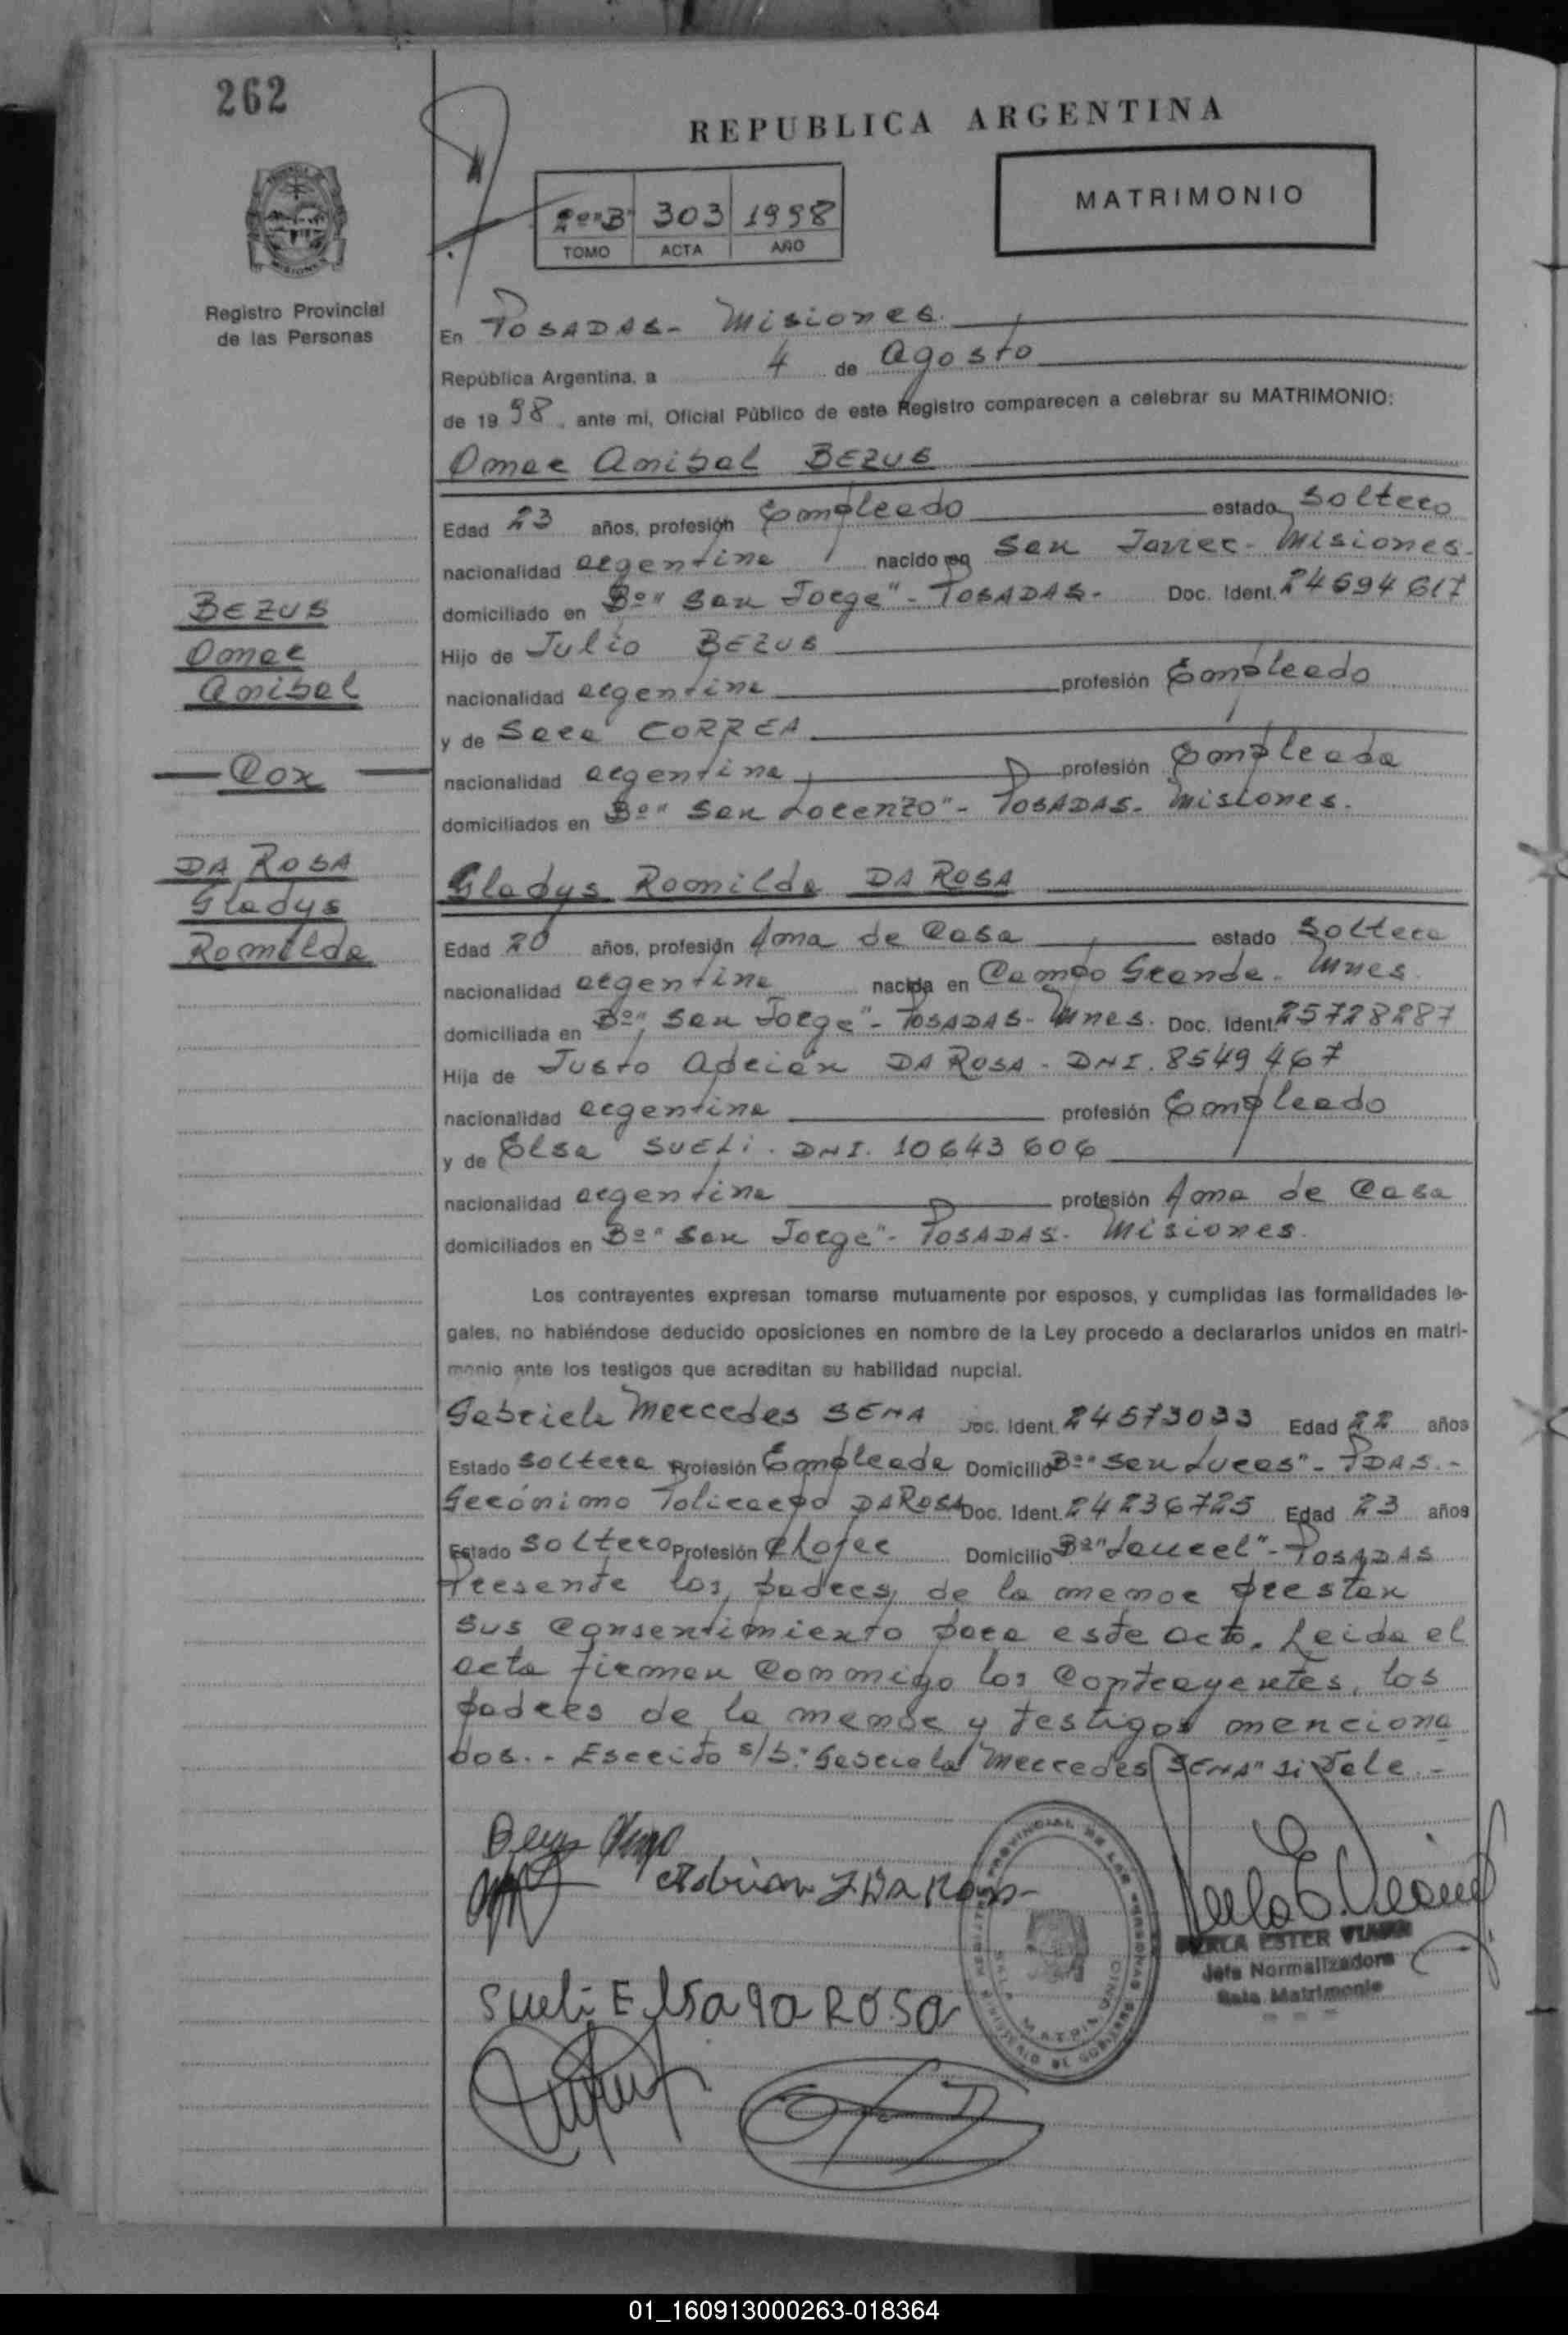 262
REPUBLICA ARGENTINA
MATRIMONIO
2º"B" 303 1998
TOMO ACTA AÑO
Registro Provincial
de las Personas
En POSADAS- Misiones.
República Argentina, a 4 de Agosto
de 1998, ante mi, Oficial Público de este Registro comparecen a celebrar su MATRIMONIO:
Omar Anibal BEZUS
Edad 23 años, profesión Empleado estado Soltero
nacionalidad argentina nacido en San Javier- Misiones-
domiciliado en Bº" San Jorge"- POSADAS- Doc. Ident. 24694617
Hijo de Julio BEZUS
nacionalidad argentina profesión Empleado
y de Sara CORREA
nacionalidad argentina profesión Empleada
domiciliados en Bº" San Lorenzo"- POSADAS- Misiones.
BEZUS
Omar
Anibal
Con
DA ROSA
Gladys
Romilda
Gladys Romilda DA ROSA
Edad 20 años, profesión Ama de Casa estado Soltera
nacionalidad argentina nacida en Campo Grande- Mnes.
domiciliada en Bº" San Jorge"- POSADAS- Mnes. Doc. Ident. 25728287
Hija de Justo Adrián DA ROSA - DNI. 8549467
nacionalidad argentina profesión Empleado
y de Elsa SUELI. DNI. 10643606
nacionalidad argentina profesión Ama de Casa
domiciliados en Bº" San Jorge"- POSADAS- Misiones.
Los contrayentes expresan tomarse mutuamente por esposos, y cumplidas las formalidades le-
gales, no habiéndose deducido oposiciones en nombre de la Ley procedo a declararlos unidos en matri-
monio ante los testigos que acreditan su habilidad nupcial.
Gabriela Mercedes SENA Doc. Ident. 24573033 Edad 22 años
Estado Soltera Profesión Empleada Domicilio Bº" San Lucas"- PDAS.-
Gerónimo Policarpo DA ROSA Doc. Ident. 24236725 Edad 23 años
Estado Soltero Profesión Chofer Domicilio Bº"Laurel"- POSADAS
Presente los padres de la menor prestan
sus consentimiento para este acto. Leida el
acta firman conmigo los contrayentes, los
padres de la menor y testigos menciona
dos.- Escrito s/b:"Gabriela Mercedes SENA" Si Vale.-
Adrian J Da Rosa
Sueli Elsa da ROSA
PERLA ESTER VIANA
Jefa Normalizadora
Sala Matrimonio
01_160913000263-018364